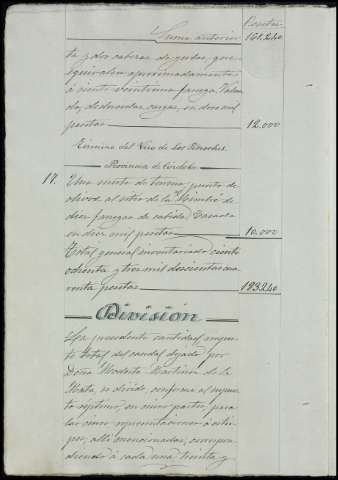 Pesetas
Suma anterior 161.240
ta y dos cabezas de yuntas, que
equivalen aproximadamente
á ciento veintiuna fanegas. Valua
da, deducidas cargas, en doce mil
pesetas 12.000
Término del Viso de los Pedroches
Provincia de Córdoba
17. Una suerte de tierra, puesta de
olivos al sitio de la
diez fanegas de cabida. Tasada
en diez mil pesetas 10.000
Total general inventariado ciento
ochenta y tres mil doscientas cua
renta pesetas 183240
División
La precedente cantidad, impor
te total del caudal dejado por
Doña Modesta Martinez de la
Mata, se divide, conforme al supues
to séptimo, en cinco partes, para
las cinco representaciones ó estir
pes, allí mencionadas, correspon
diendo á cada una treinta y